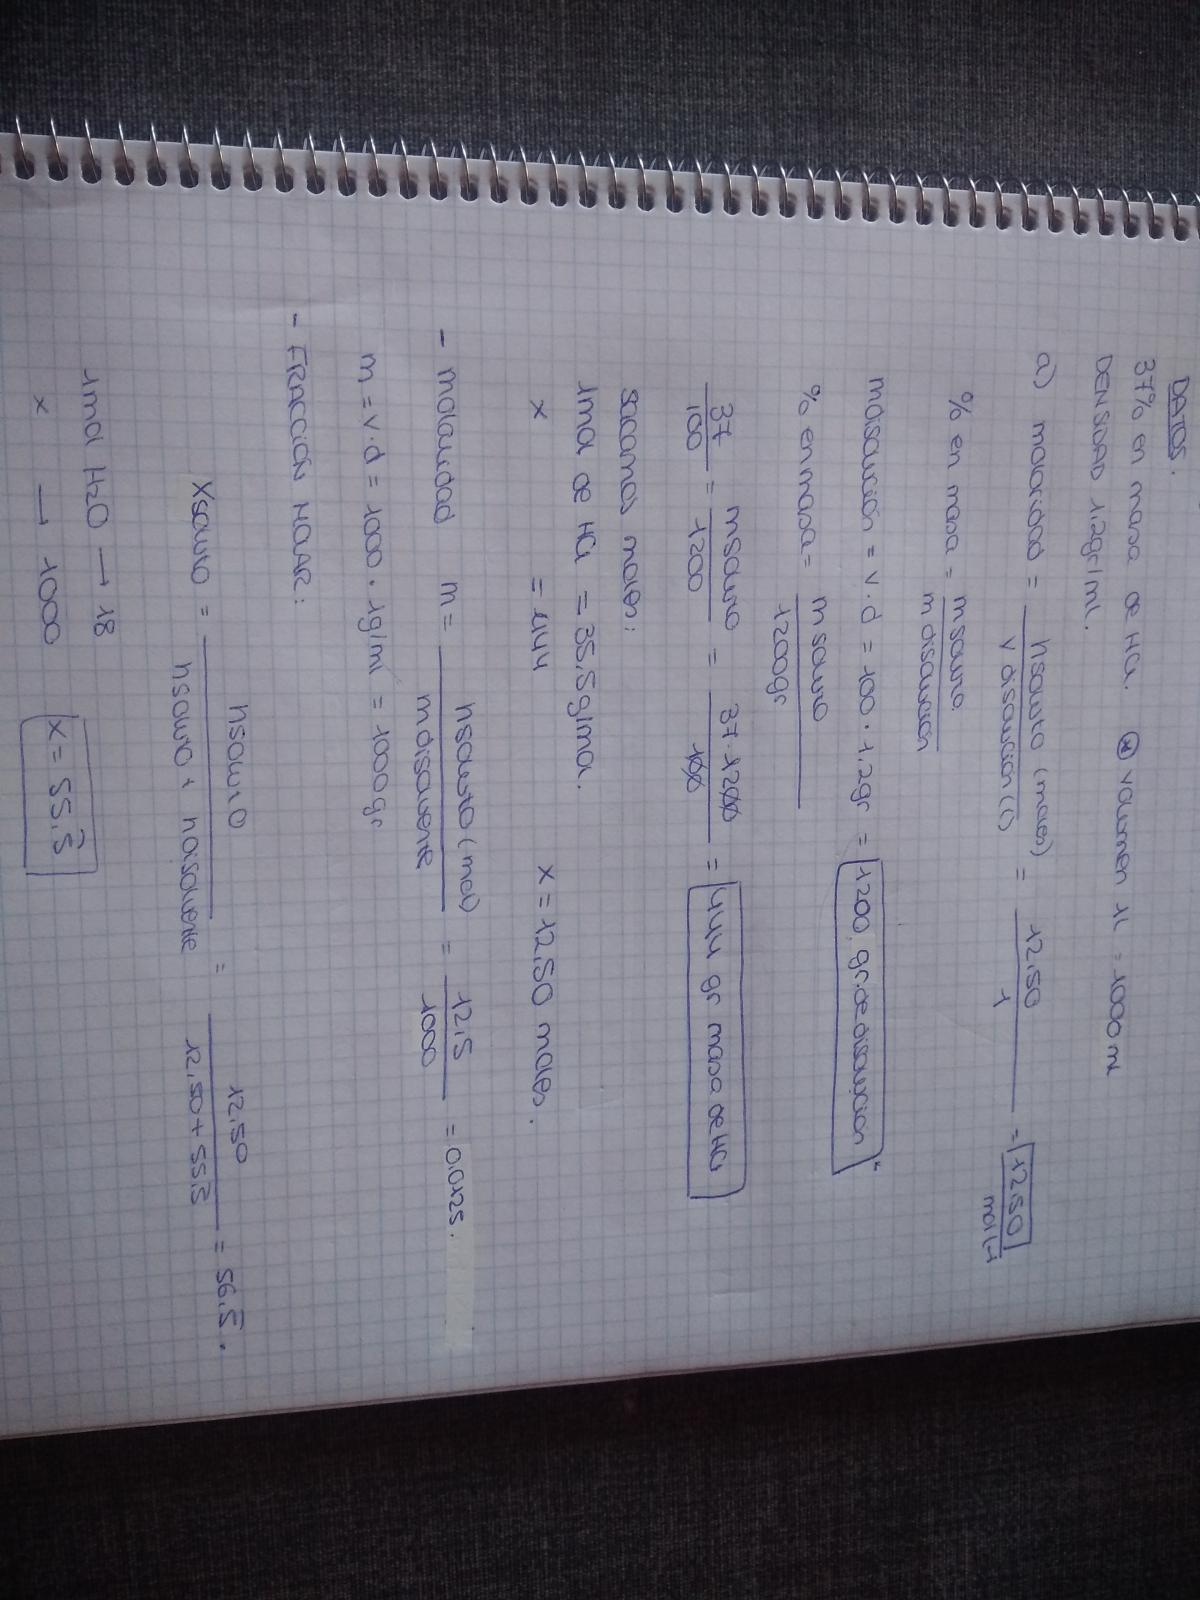 DATOS.
37% en masa de HCl. * volumen 1L = 1000 mL
DENSIDAD 1,2gr/mL.
a) molaridad = n soluto (moles) / v disolución (l) = 12,50 / 1 = 12,50 mol/L
% en masa = m soluto / m disolución
m disolución = v · d = 100 · 1,2gr = 1200 gr. de disolución
% en masa = m soluto / 1200gr
37 / 100 = m soluto / 1200 = 37 · 1200 / 100 = 444 gr masa de HCl
sacamos moles:
1mol de HCl = 35,5g/mol.
x = 444 x = 12,50 moles.
- molalidad m = n soluto (mol) / m disolvente = 12,5 / 1000 = 0,0125.
m = v · d = 1000 · 1g/ml = 1000gr
- FRACCIÓN MOLAR:
X soluto = n soluto / n soluto + n disolvente = 12,50 / 12,50 + 55,5 = 56,5.
1mol H2O → 18
x → 1000 x = 55,5